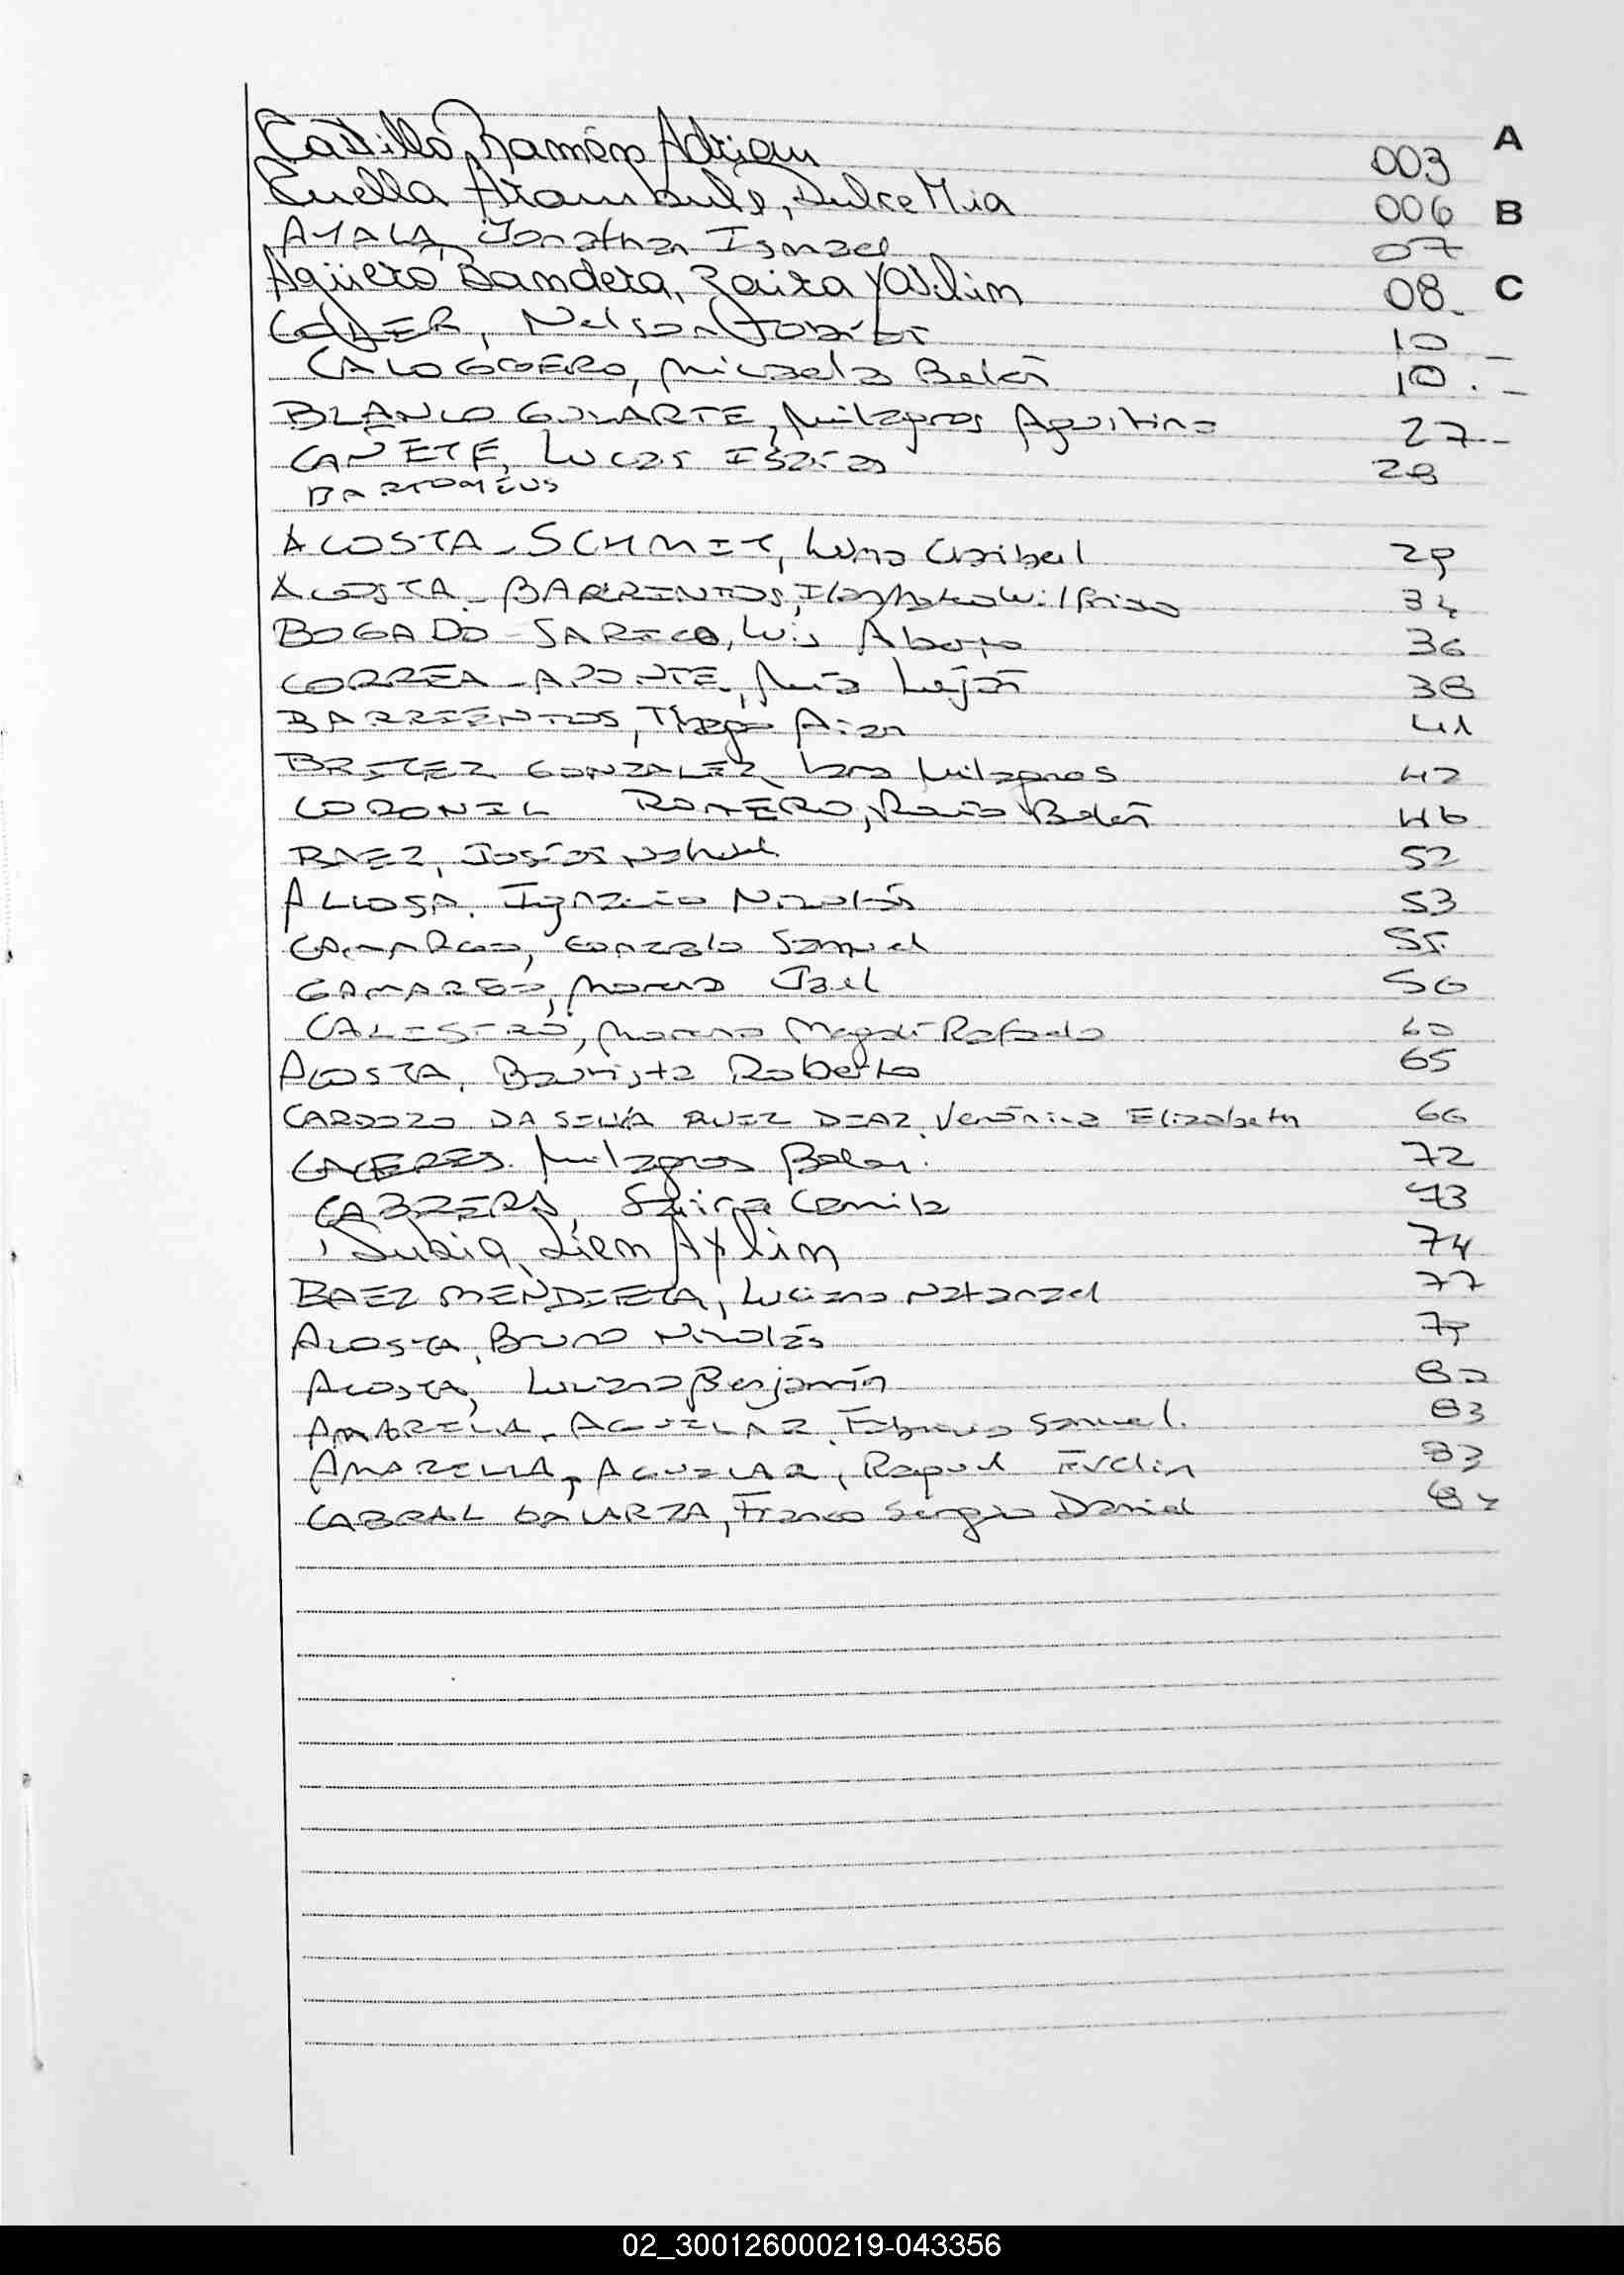 Castillo, Ramón Adrian 003 A
Cuella Arambule, Dulce Mia 006 B
AYALA, Jonathan Ismael 07
Agüero Bandera, Zaira Yasilim 08. C
Nelson Tobías 10
CALOGGERO, Micaela Belén 10.
BLANCO GULARTE, Milagros Agustina 27
CAÑETE, Lucas Isaías 28
BARTOMEUS
ACOSTA - SCHMIT, Luna 29
ACOSTA - BARRINTOS, 34
BOGADO - Luis 36
CORREA - APONTE, Mía Luján 38
BARRIENTOS, Thiago 41
BRITEZ GONZALEZ Milagros 42
CORONIL ROMERO, Rocío Belén 46
BAEZ, Josías Nahuel 52
Ignacio Nicolás 53
CAMARGO, Gonzalo Samuel 55
CAMARGO, Morena Jael 56
Morena Magalí Rafaela 60
ACOSTA, Bautista Roberto 65
CARDOZO DA SILVA RUIZ DIAZ, Verónica Elizabeth 66
CACERES. Milagros Belen. 72
CABRERA, Camila 73
74
BAEZ MENDIETA, Luciano Natanael 77
ACOSTA, Bruno Nicolás 79
ACOSTA, Luciano Benjamín 82
AMARILLA - AGUILAR, Fabricio Samuel. 83
AMARILLA - AGUILAR, Raquel Evelin 83
CABRAL GALARZA, Franco Sergio Daniel
02_300126000219-043356